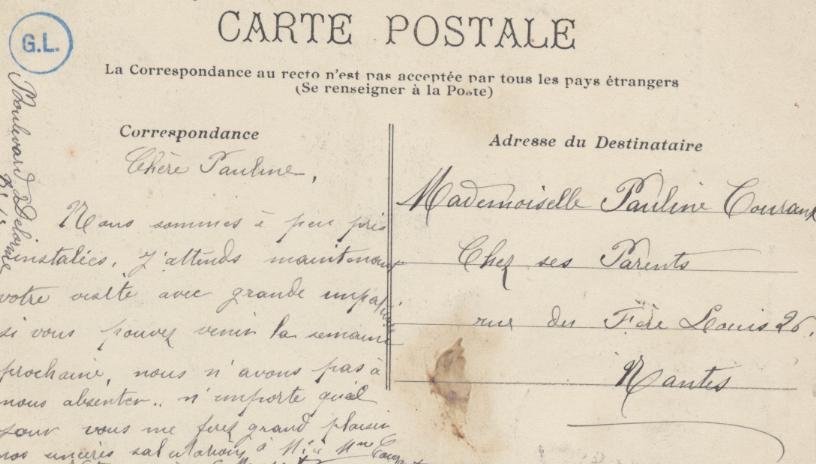 CARTE POSTALE
G.L.
La Correspondance au recto n'est pas acceptée par tous les pays étrangers
(Se renseigner à la Poste)
Correspondance
Chère Pauline,
Nous sommes à peu près
instalées. J'attends maintenant
votre visite avec grande impatience
si vous pouvez venir la semaine
prochaine, nous n'avons pas à
nous absenter.. n'importe quel
jour vous me ferez grand plaisir
nos sincères salutations à Mr & Mme
Boulevard Delorme
Adresse du Destinataire
Mademoiselle Pauline
Chez ses Parents
rue du Fère Louis 26.
Nantes